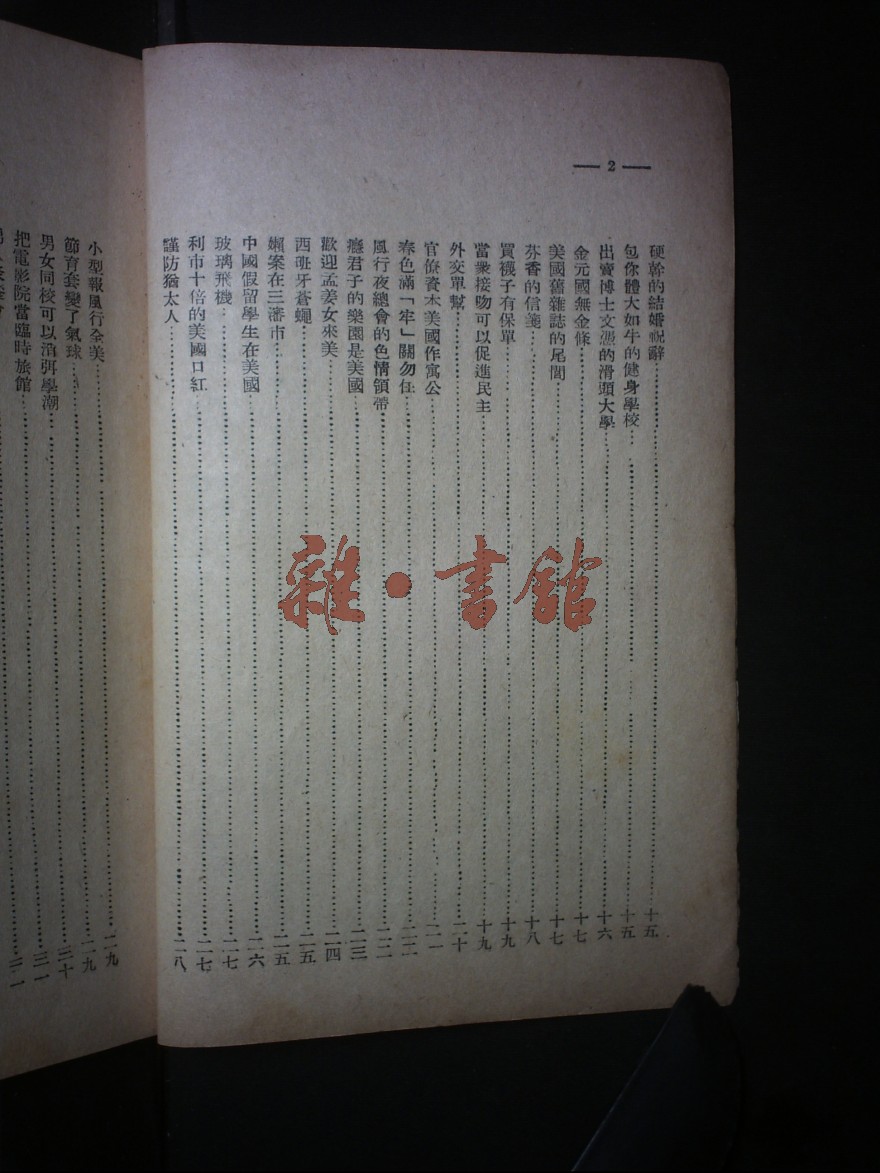 — 2 —
硬幹的結婚祝辭……十五
包你體大如牛的健身學校……十五
出賣博士文憑的滑頭大學……十六
金元國無金條……十七
美國舊雜誌的尾閭……十七
芬香的信箋……十八
買襪子有保單……十九
當衆接吻可以促進民主……十九
外交單幫……二十
官僚資本美國作寓公……二一
春色滿「牢」關勿住……二二
風行夜總會的色情領帶……二二
癮君子的樂園是美國……二三
歡迎孟姜女來美……二四
西班牙蒼蠅……二五
嬾案在三藩市……二五
中國假留學生在美國……二六
玻璃飛機……二七
利市十倍的美國口紅……二七
謹防猶太人……二八
小型報風行全美……二九
節育套變了氣球……二九
男女同校可以消弭學潮……三十
把電影院當臨時旅館……三一
雜·書館